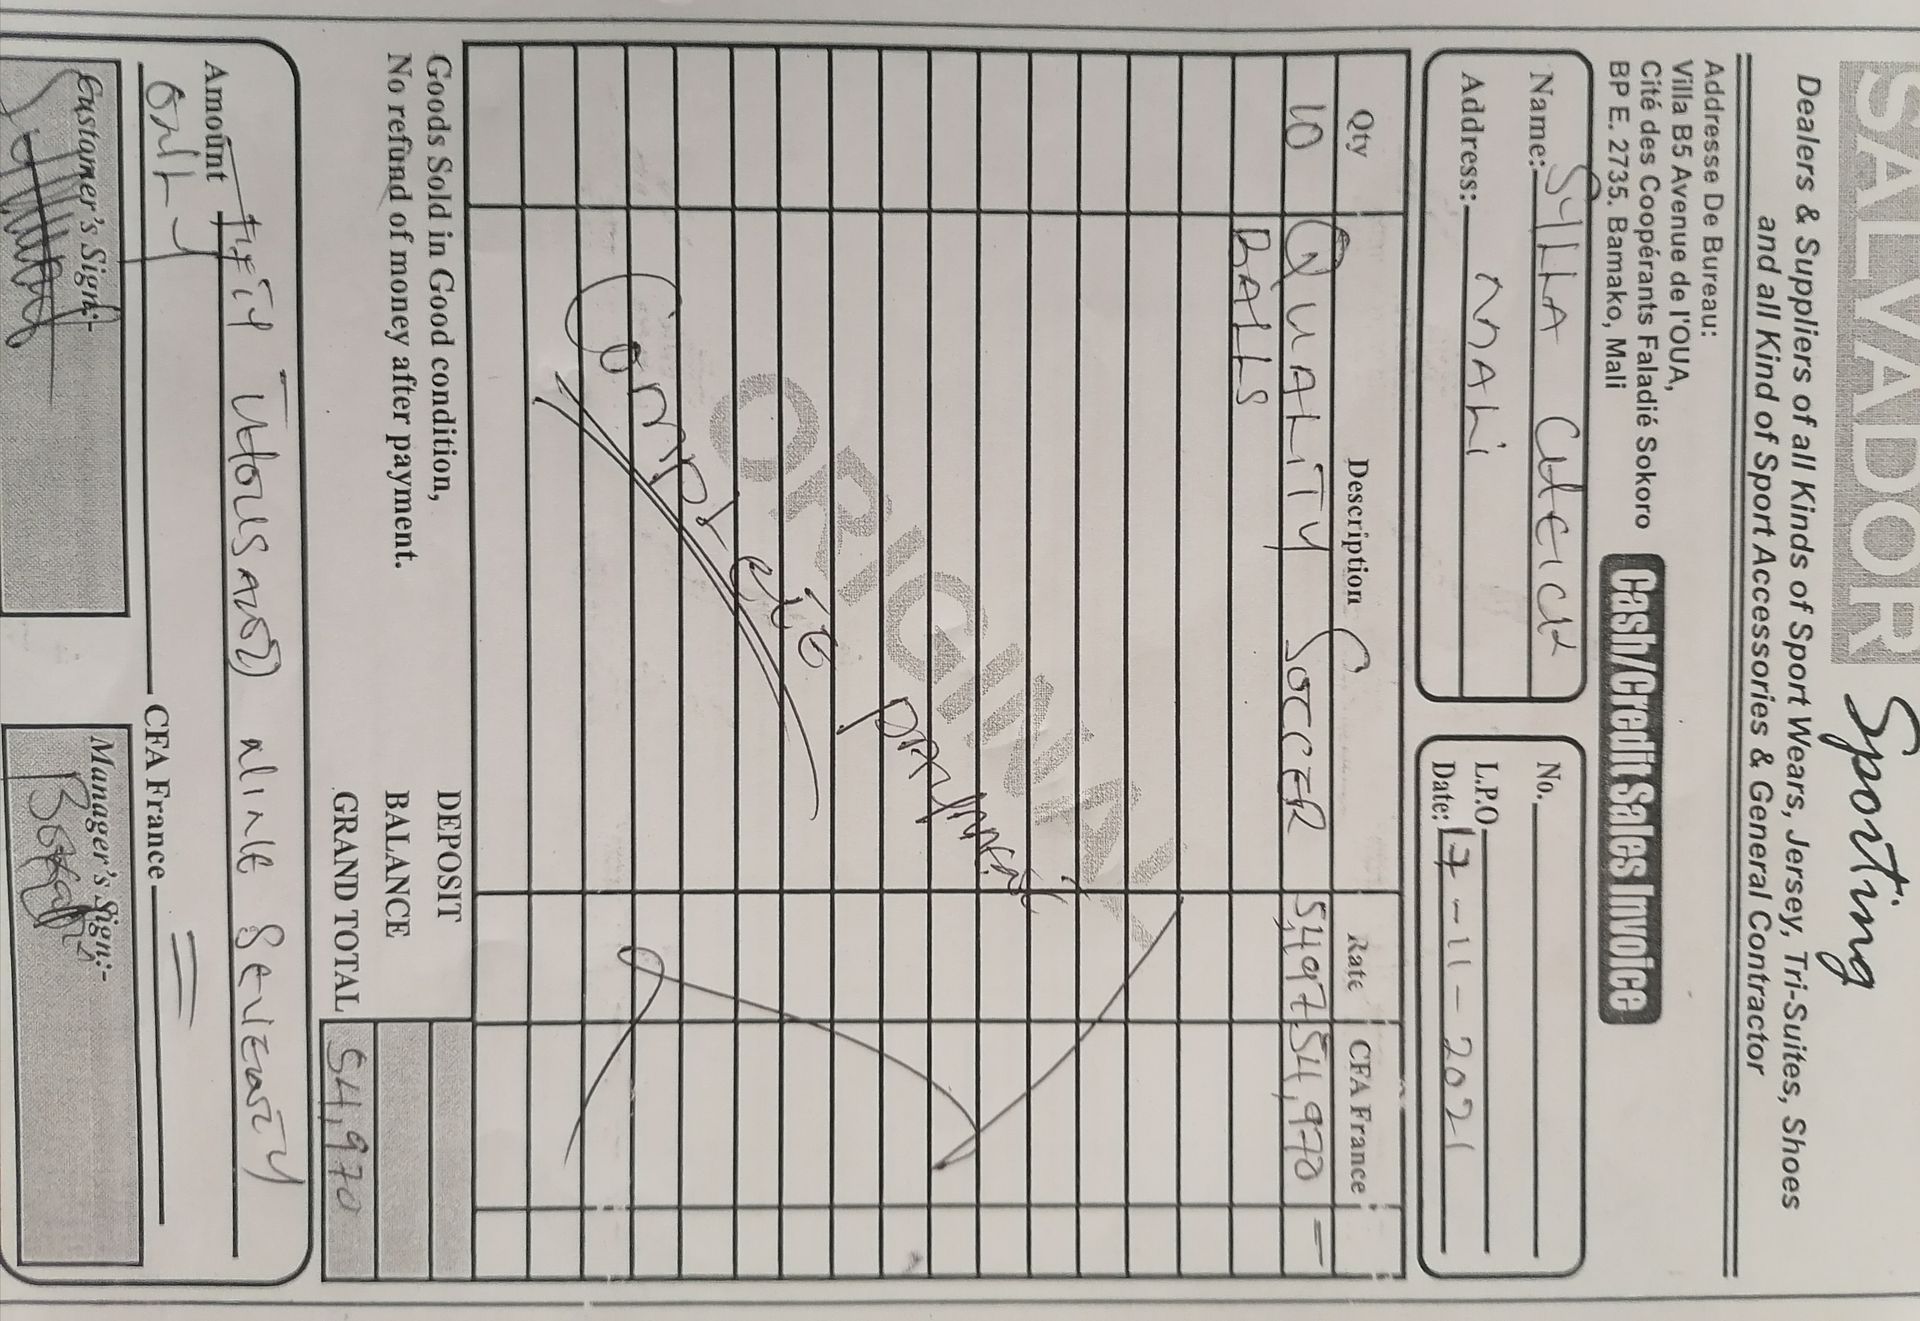 SALVADOR Sporting
Dealers & Suppliers of all Kinds of Sport Wears, Jersey, Tri-Suites, Shoes
and all Kind of Sport Accessories & General Contractor
Addresse De Bureau:
Villa B5 Avenue de l'OUA,
Cité des Coopérants Faladié Sokoro
BP E. 2735. Bamako, Mali
Cash/Credit Sales Invoice
Name: SYLLA CHEICK
Address: MALI
No.
L.P.O
Date: 17-11-2021
Qty Description Rate CFA France
10 QUALITY SOCCER 5,497 54,970 =
BALLS
ORIGINAL
Complete payment
Goods Sold in Good condition,
No refund of money after payment.
DEPOSIT
BALANCE
GRAND TOTAL 54,970
Amount Thousand nine Seventy
only CFA France =
Customer's Sign:-
Manager's Sign:-